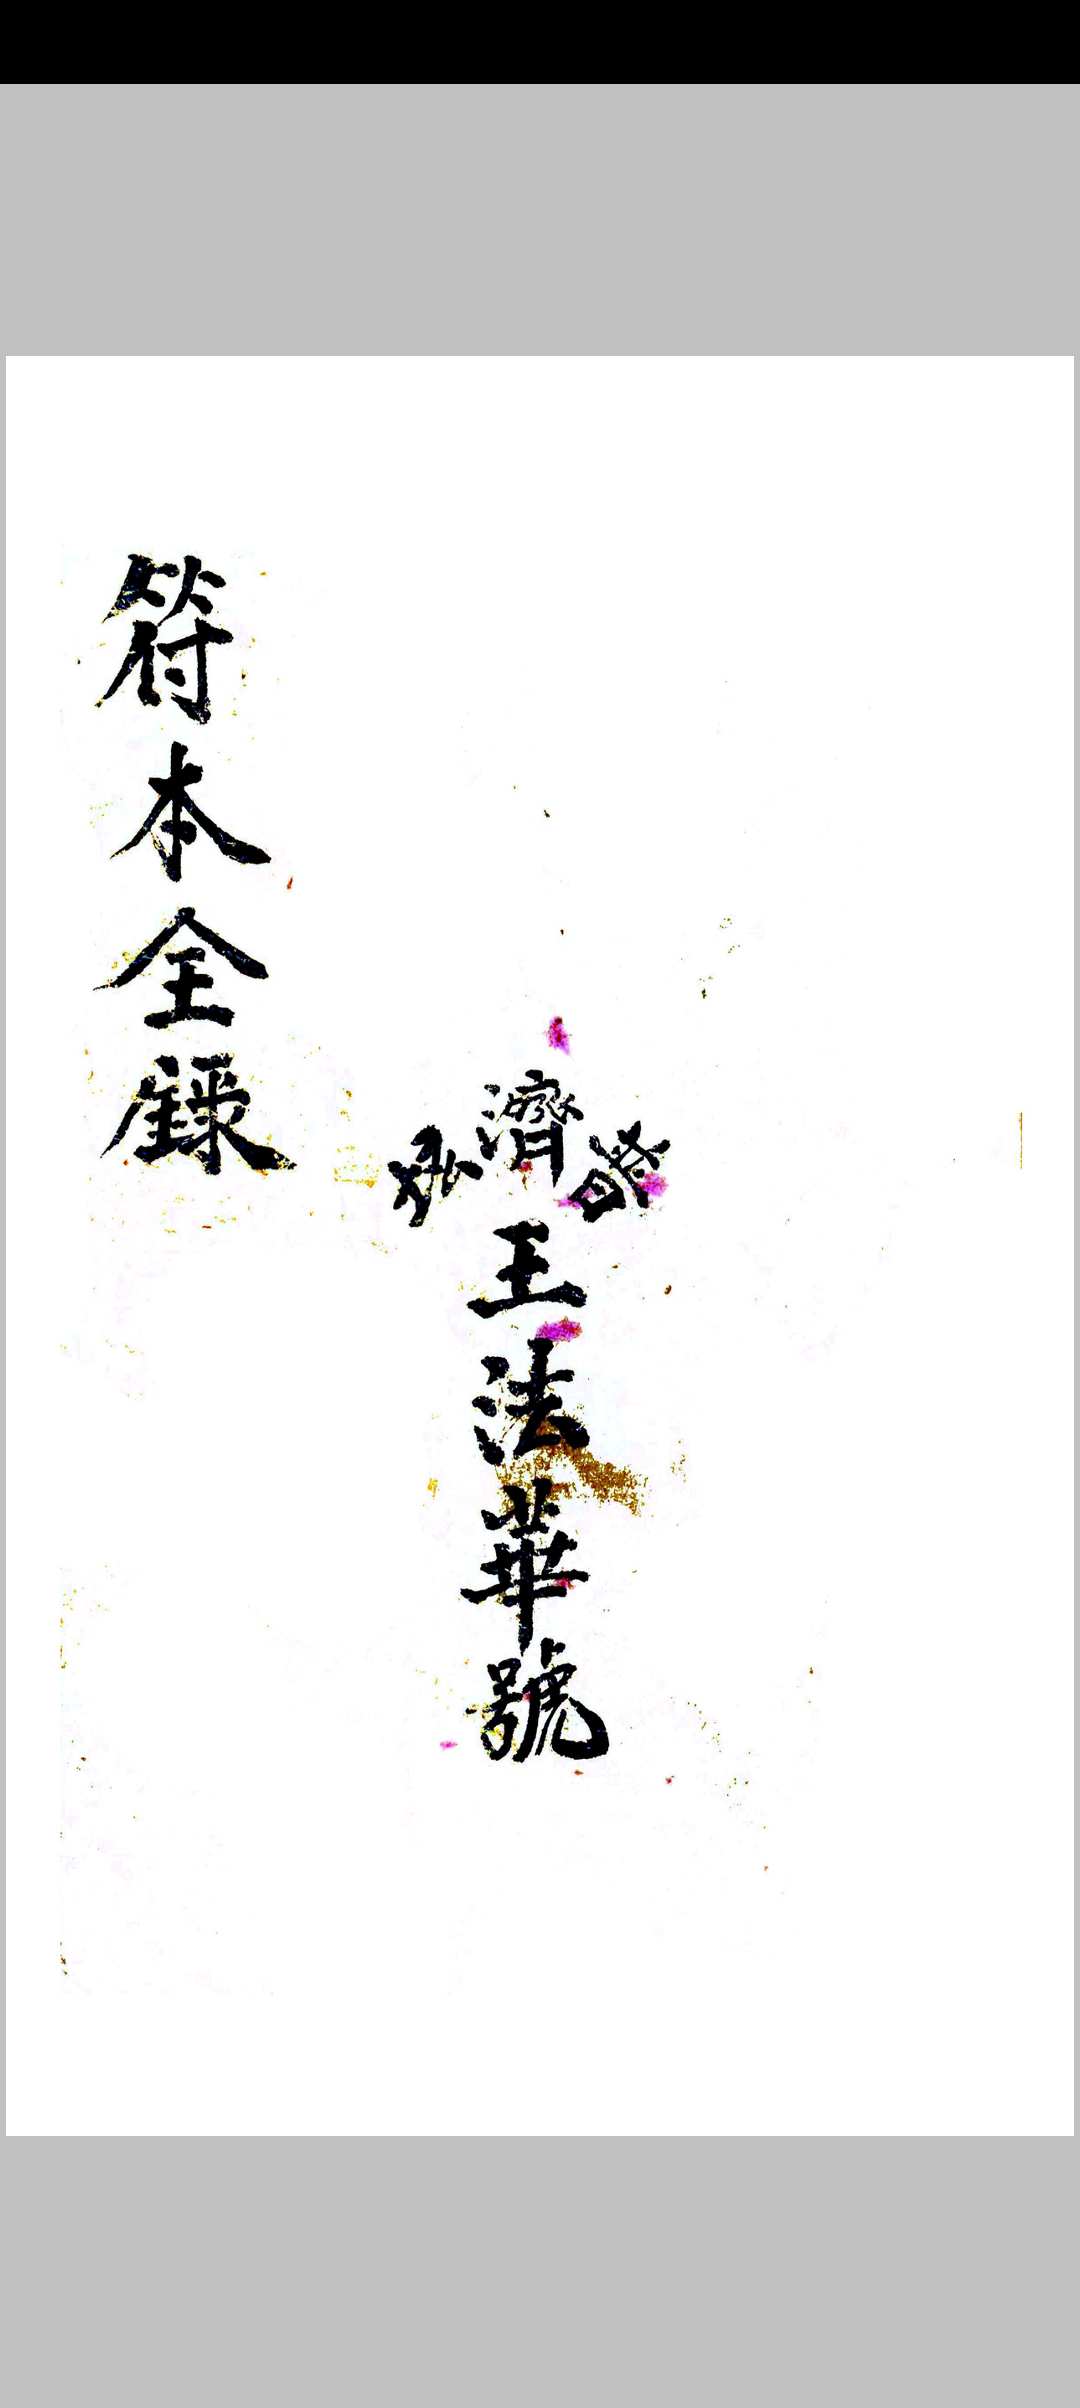 濟
王法華號
符本全錄